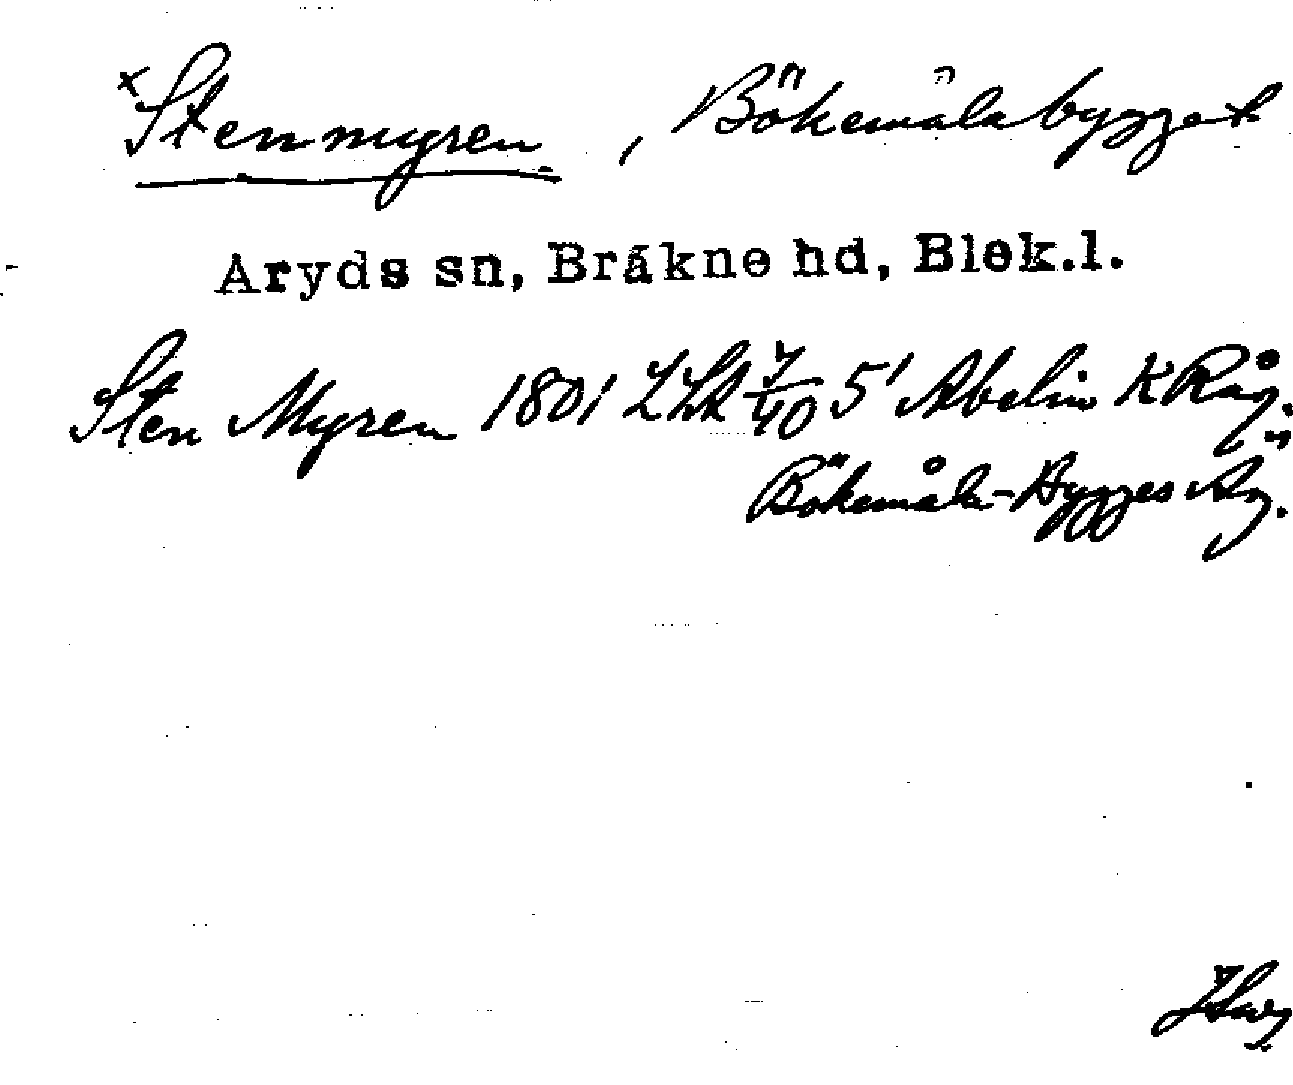 × Stenmyren, Bökemålabygget
Aryds sn, Bräkne hd, Blek.l.
Sten Myren 1801 LSk 7/40 5' Abelin K Råg.
Bökemåla-Bygges Äg.